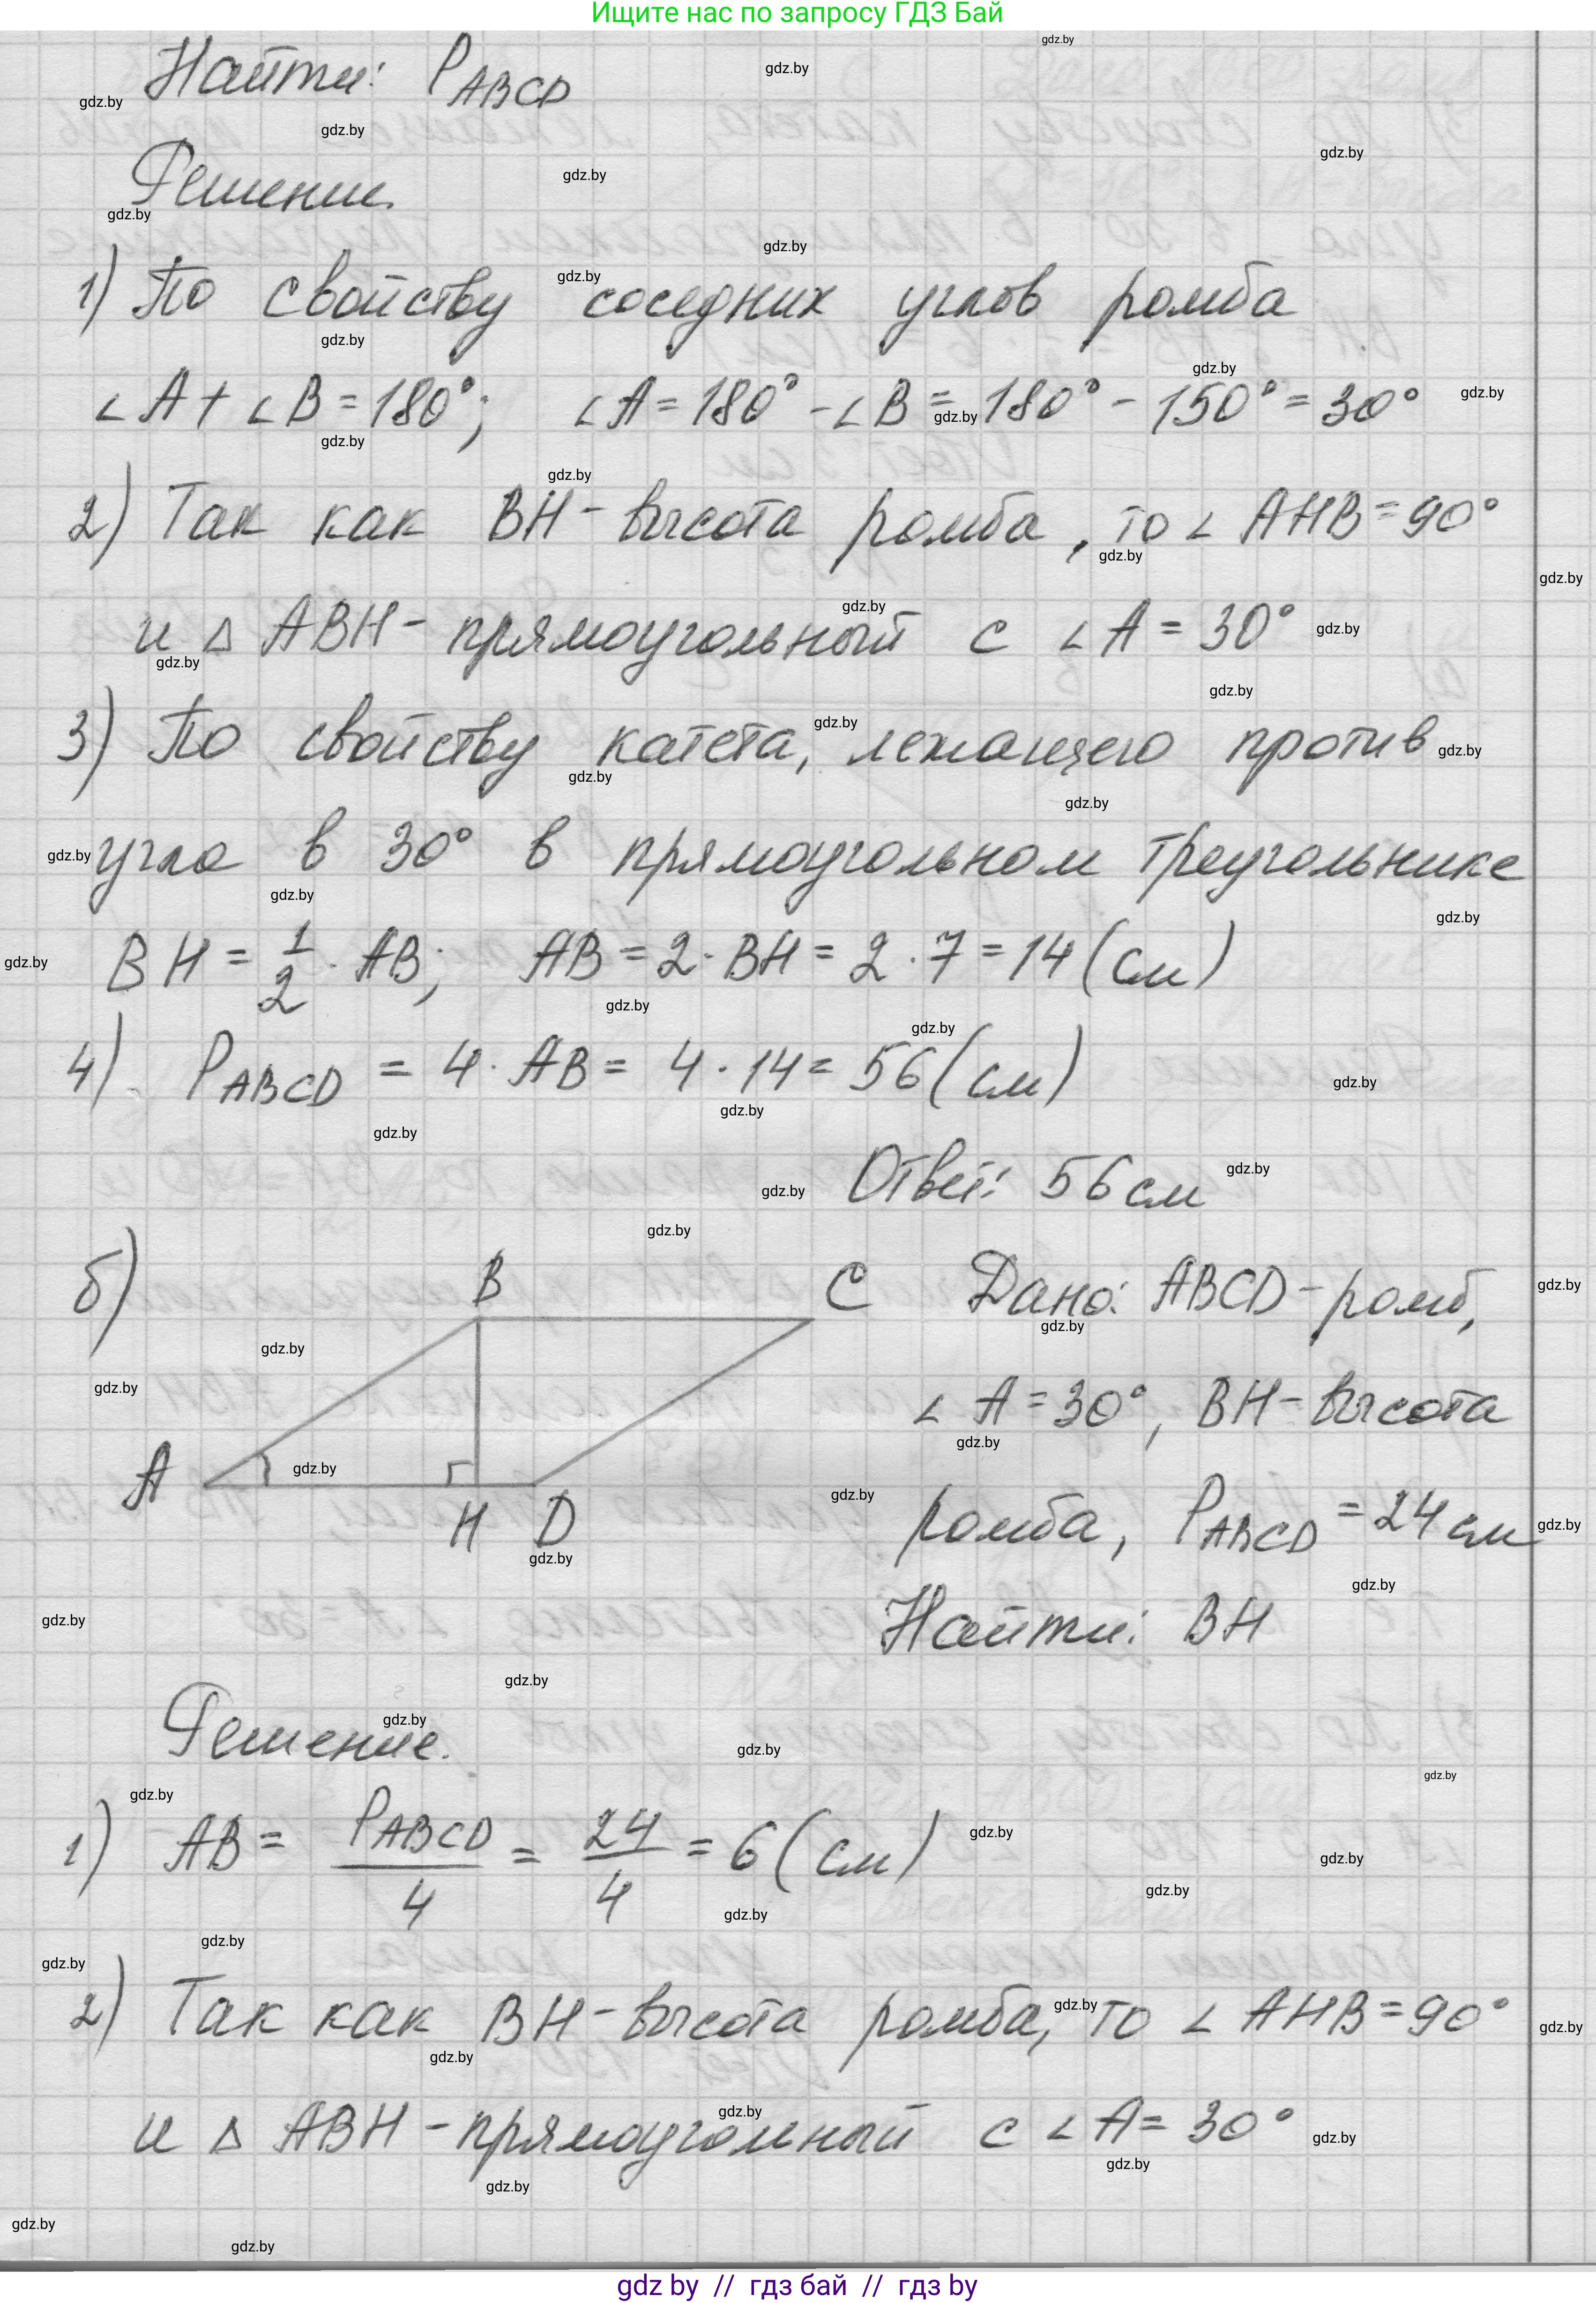 Ищите нас по запросу ГДЗ Бай
Найти: P_ABCD
Решение.
1) По свойству соседних углов ромба
∠A + ∠B = 180°; ∠A = 180° - ∠B = 180° - 150° = 30°
2) Так как BH - высота ромба, то ∠AHB = 90°
и △ABH - прямоугольный с ∠A = 30°
3) По свойству катета, лежащего против
угла в 30° в прямоугольном треугольнике
BH = 1/2 · AB; AB = 2 · BH = 2 · 7 = 14 (см)
4) P_ABCD = 4 · AB = 4 · 14 = 56 (см)
Ответ: 56 см
б)
B
C
A
H
D
Дано: ABCD - ромб,
∠A = 30°, BH - высота
ромба, P_ABCD = 24 см
Найти: BH
Решение.
1) AB = P_ABCD/4 = 24/4 = 6 (см)
2) Так как BH - высота ромба, то ∠AHB = 90°
и △ABH - прямоугольный с ∠A = 30°
gdz by // гдз бай // гдз by